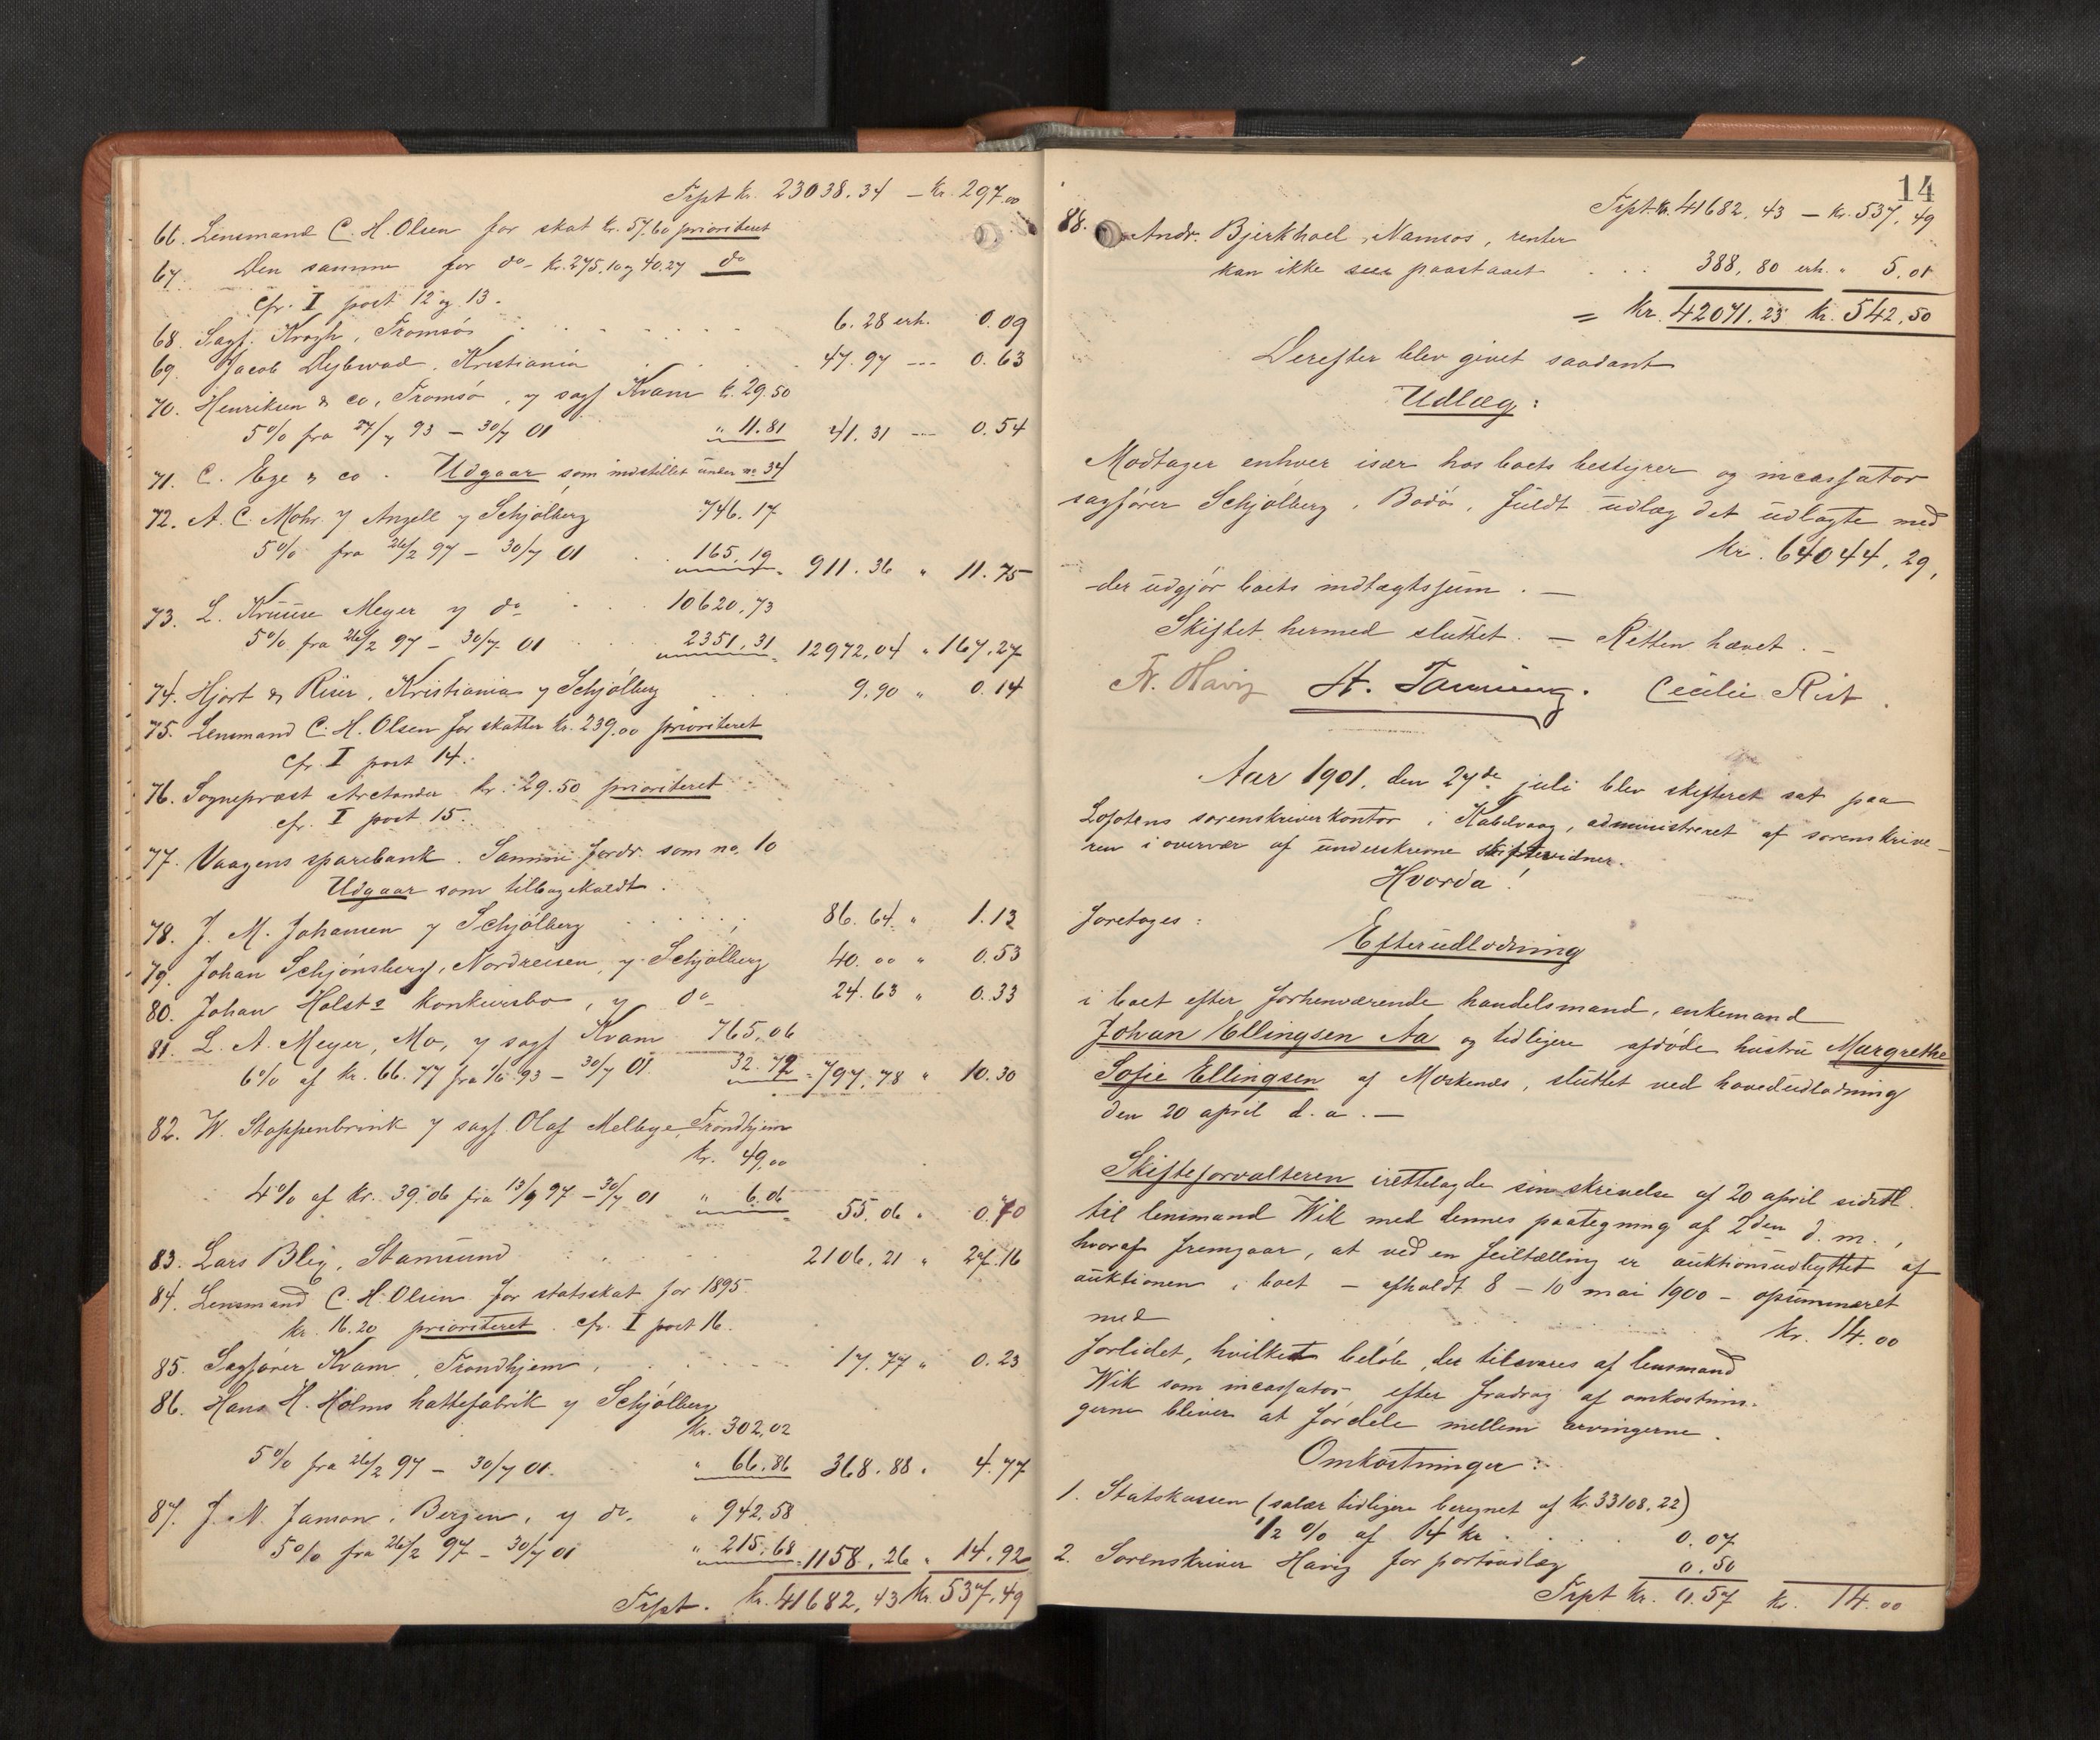 Trpt kr. 23038.34 — kr. 297.00
66. Lensmand C. H. Olsen for skat kr. 57.60 prioriteret
67. Den samme for do kr. 275.10 og 40.27 do
cfr. I post 12 og 13.
68. Sagf. Krogh, Tromsø 6.28 erh. 0.09
69. Jacob Dybwad, Kristiania 47.97 — 0.63
70. Henriksen & co, Tromsø, v sagf Kvam kr. 29.50
5% fra 27/7 93 — 30/7 01 " 11.81 41.31 — 0.54
71. C. Ege & co. Udgaar som indstillet under no 34
72. A. C. Mohr v Angell v Schjølberg 746.17
5% fra 26/2 97 — 30/7 01 165.19 911.36 " 11.75
73. L. Kruuse Meyer v do 10620,73
5% fra 26/2 97 — 30/7 01 2351,31 12972,04 " 167,27
74. Hjort & Riser, Kristiania v Schjølberg 9.90 " 0.14
75. Lensmand C. H. Olsen for skatter kr. 239.00 prioriteret
cfr. I post 14.
76. Sognepræst Arctander kr. 29.50 prioriteret
cfr. I post 15.
77. Vaagens sparebank. Samme fordr. som no. 10
Udgaar som tilbagekaldt.
78. J. M. Johansen v Schjølberg 86.64 " 1.13
79. Johan Schjønsberg, Nordreisen, v. Schjølberg 40.00 " 0.53
80. Johan Holsts konkursbo, v do 24.63 " 0.33
81. L. A. Meyer, Mo, v sagf Kvam 765,06
6% af kr. 66.77 fra 1/6 93 — 30/7 01. 32.72 797,78 " 10.30
82. W. Stoppenbrink v sagf. Olaf Melbye, Trondhjem
kr. 49,00
4% af kr. 39.06 fra 13/9 97 — 30/7 01 " 6.06 55.06 " 0.70
83. Lars Blix, Stamsund 2106.21 " 27.16
84. Lensmand C. H. Olsen for statsskat for 1895
kr. 16.20 prioriteret. cfr. I post 16.
85. Sagfører Kvam, Trondhjem, 17.77 " 0.23
86. Hans H. Holms hattefabrik v Schjølberg
kr. 302,02
5% fra 26/2 97 — 30/7 01. " 66.86 368.88 " 4.77
87. J. N. Janson, Bergen, v do. " 942,58
5% fra 26/2 97 — 30/7 01 " 215,68 1158,26 " 14,92
Trpt. kr. 41682,43 kr. 537,49
14
Trpt. kr. 41682,43 — kr. 537,49
88. Andr. Bjerkhoel, Namsos, renter
kan ikke sees paastaaet 388,80 erh. " 5.01
= kr. 42071.23 kr. 542,50
Derefter blev givet saadant
Udlæg:
Modtager enhver især hos boets bestyrer og incassator
sagfører Schjølberg, Bodø, fuldt udlæg det udlagte med
kr. 64044,29,
der udgjør boets indtægtssum. —
Skiftet hermed sluttet. — Retten hævet. —
Fr. Havig H. Tanning. Cecilie Rist.
Aar 1901, den 27de juli blev skifteret sat paa
Lofotens sorenskriverkontor i Kabelvaag, administreret af sorenskrive-
ren i overvær af underskrevne skiftevidner.
Hvorda!
foretoges:
Efterudlodning
i boet efter forhenværende handelsmand, enkemand
Johan Ellingsen Aa og tidligere afdøde hustru Margrethe
Sofie Ellingsen af Moskenes, sluttet ved hovedudlodning
den 20 april d. a. —
Skifteforvalteren irettelagde sin skrivelse af 20 april sidstl.
til lensmand Wik med dennes paategning af 2den d. m.,
hvoraf fremgaar, at ved en feiltælling er auktionsudbyttet af
auktionen i boet — afholdt 8 — 10 mai 1900 — opsummeret
med kr. 14.00
forlidet, hvilket beløb, der tilsvares af lensmand
Wik som incassator efter fradrag af omkostnin-
gerne bliver at fordele mellem arvingerne.
Omkostninger:
1. Statskassen (salær tidligere beregnet af kr. 33108.22)
1/2 % af 14 kr. 0.07
2. Sorenskriver Havig for portoudlæg 0.50
Trpt kr. 0.57 kr. 14.00